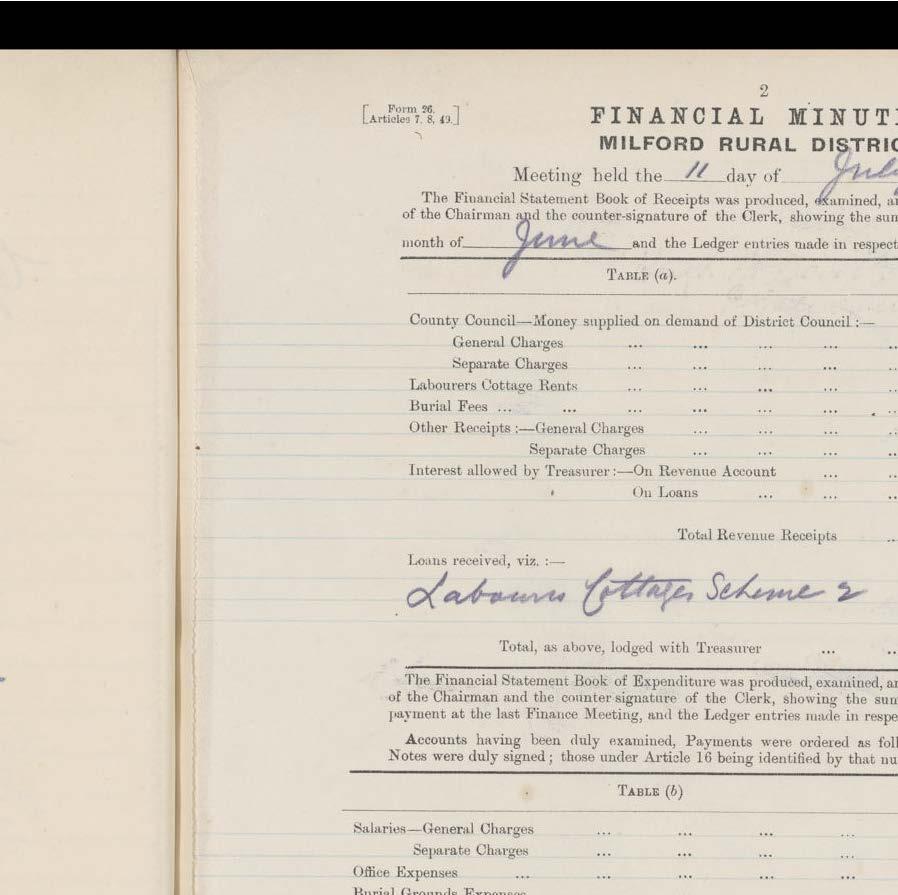 2
[Form 26.
Articles 7, 8, 49.]
FINANCIAL MINUT
MILFORD RURAL DISTRIC
Meeting held the 11 day of July
The Financial Statement Book of Receipts was produced, examined, a
of the Chairman and the counter-signature of the Clerk, showing the sum
month of June and the Ledger entries made in respect
TABLE (a).
County Council—Money supplied on demand of District Council :—
General Charges ... ... ... ... ..
Separate Charges ... ... ... ... ..
Labourers Cottage Rents ... ... ... ... ..
Burial Fees ... ... ... ... ... ... ..
Other Receipts :—General Charges ... ... ... ..
Separate Charges ... ... ... ..
Interest allowed by Treasurer :—On Revenue Account ... ..
On Loans ... ... ..
Total Revenue Receipts ..
Loans received, viz. :—
Labourers Cottages Scheme 2
Total, as above, lodged with Treasurer ... ..
The Financial Statement Book of Expenditure was produced, examined, a
of the Chairman and the counter-signature of the Clerk, showing the sum
payment at the last Finance Meeting, and the Ledger entries made in respe
Accounts having been duly examined, Payments were ordered as foll
Notes were duly signed ; those under Article 16 being identified by that nu
TABLE (b)
Salaries—General Charges ... ... ... ...
Separate Charges ... ... ... ...
Office Expenses ... ... ... ... ...
Burial Grounds Expenses